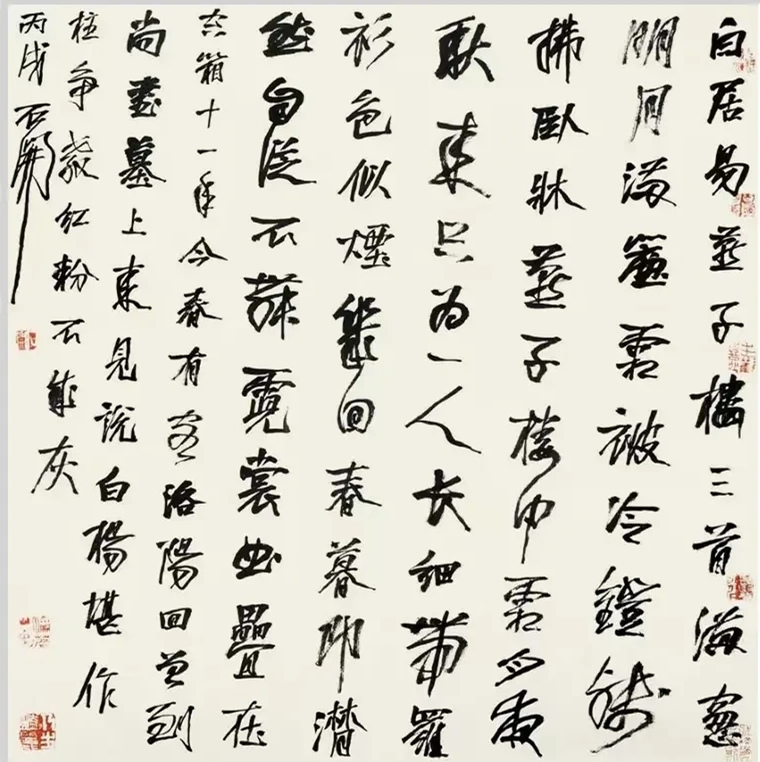 白居易燕子樓三首滿窗
明月滿簾霜被冷鐙殘
拂臥牀燕子樓中霜月夜
秋來只為一人長鈿帶羅
衫色似煙幾回春暮即潸
然自從不舞霓裳曲疊在
空箱十一年今春有客洛陽回曾到
尚書墓上來見說白楊堪作
柱爭教紅粉不成灰
丙戌石開